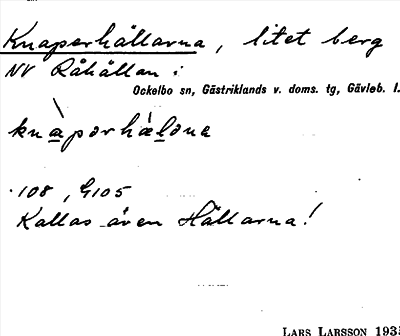 Knaperhällarna, litet berg
NV Råhällan i
Ockelbo sn, Gästriklands v. doms. tg, Gävleb. l.
knàpərhæ̀ləna
108, G105
Kallas även Hällarna!
LARS LARSSON 193